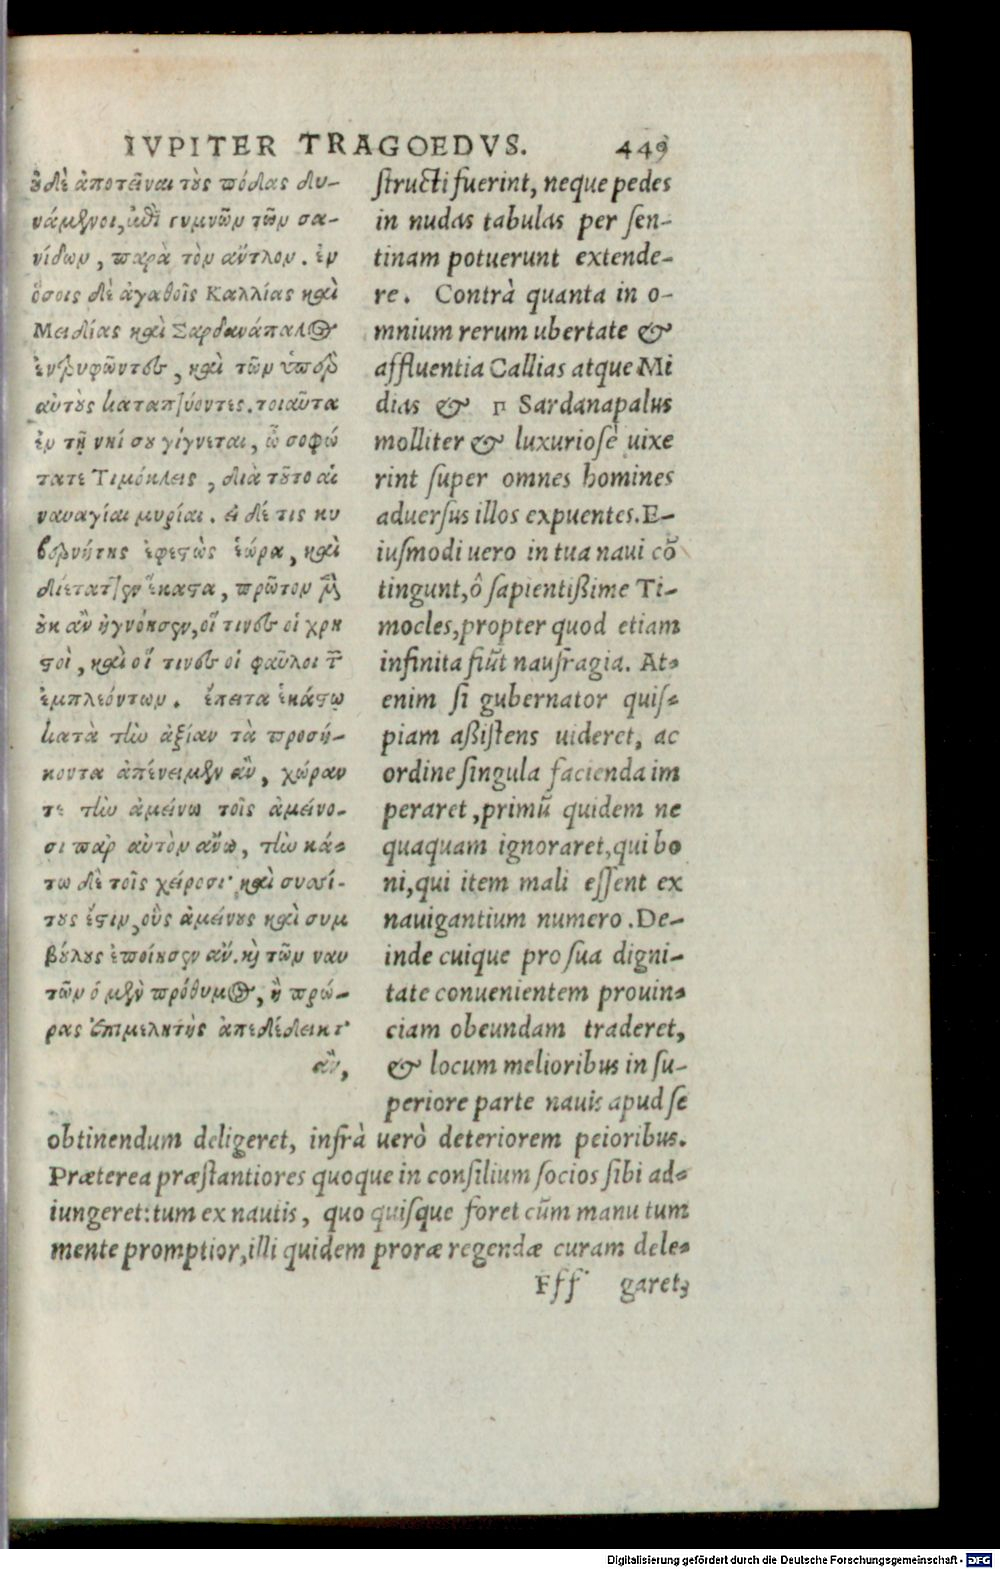 IVPITER TRAGOEDVS. 449
ȣδὲ ἀποτεῖναι τȣ̀ς πόδας δυ-
νάμενοι, ἐπὶ γυμνῶν τῶν σα-
νίδων, παρὰ τὸν ἄντλον. ἐν
ὅσοις δὲ ἀγαθοῖς Καλλίας καὶ
Μειδίας καὶ Σαρδανάπαλος
ἐντρυφῶντες, καὶ τῶν ὑπὲρ
αὐτȣ̀ς καταπτύοντες. τοιαῦτα
ἐν τῇ νηί σου γίγνεται, ὦ σοφώ
τατε Τιμόκλεις, διὰ τȣ͂το αἱ
ναυαγίαι μυρίαι. εἰ δέ τις κυ
βερνήτης ἐφεστὼς ἑώρα, καὶ
διέταττεν ἕκαστα, πρῶτον μὲν
ȣκ ἂν ἠγνόησεν, οἵ τινες οἱ χρη
στοὶ, καὶ οἵ τινες οἱ φαῦλοι τῶν
ἐμπλεόντων. ἔπειτα ἑκάστῳ
κατὰ τὴν ἀξίαν τὰ προσή-
κοντα ἀπένειμεν ἂν, χώραν
τε τὴν ἀμείνω τοῖς ἀμείνο-
σι παρ αὐτὸν ἄνω, τὴν κά-
τω δὲ τοῖς χείροσι· καὶ συσσί-
τȣς ἔστιν, οὓς ἀμείνȣς καὶ συμ
βȣ́λȣς ἐποίησεν ἄν. καὶ τῶν ναυ
τῶν ὁ μὲν πρόθυμος, ἢ πρώ-
ρας ἐπιμελητὴς ἀπεδέδεικτ'
ἂν,
structi fuerint, neque pedes
in nudas tabulas per sen-
tinam potuerunt extende-
re. Contrà quanta in o-
mnium rerum ubertate &
affluentia Callias atque Mi
dias & Sardanapalus
molliter & luxuriosè uixe
rint super omnes homines
aduersus illos expuentes. E-
iusmodi uero in tua naui cō
tingunt, ô sapientißime Ti-
mocles, propter quod etiam
infinita fiūt naufragia. At-
enim si gubernator quis-
piam aßistens uideret, ac
ordine singula facienda im
peraret, primū quidem ne
quaquam ignoraret, qui bo
ni, qui item mali essent ex
nauigantium numero. De-
inde cuique pro sua digni-
tate conuenientem prouin-
ciam obeundam traderet,
& locum melioribus in su-
periore parte nauis apud se
obtinendum deligeret, infrà uerò deteriorem peioribus.
Præterea præstantiores quoque in consilium socios sibi ad-
iungeret: tum ex nautis, quo quisque foret cūm manu tum
mente promptior, illi quidem proræ regendæ curam dele-
Fff garet;
Digitalisierung gefördert durch die Deutsche Forschungsgemeinschaft - DFG